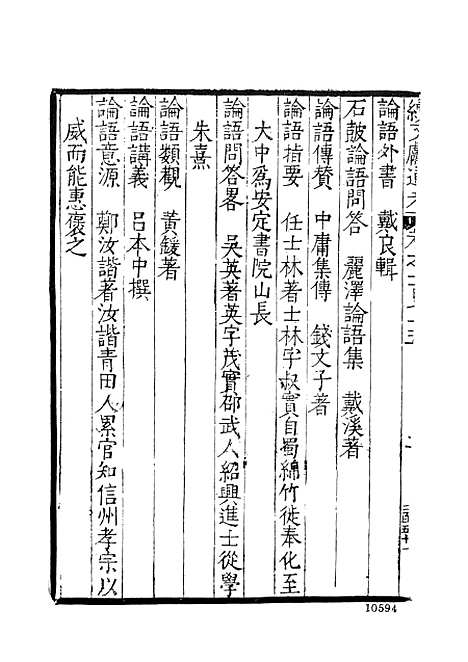 論語外書　戴良輯
石皷論語問答　麗澤論語集　戴溪著
論語傳贊　中庸集傳　錢文子著
論語指要　任士林著士林字叔實自蜀綿竹徙奉化至
大中爲安定書院山長
論語問答畧　吳英著英字茂實邵武人紹興進士從學
朱熹
論語類觀　黃鍰著
論語講義　呂本中撰
論語意源　鄭汝諧著汝諧青田人累官知信州孝宗以
威而能惠襃之
10594